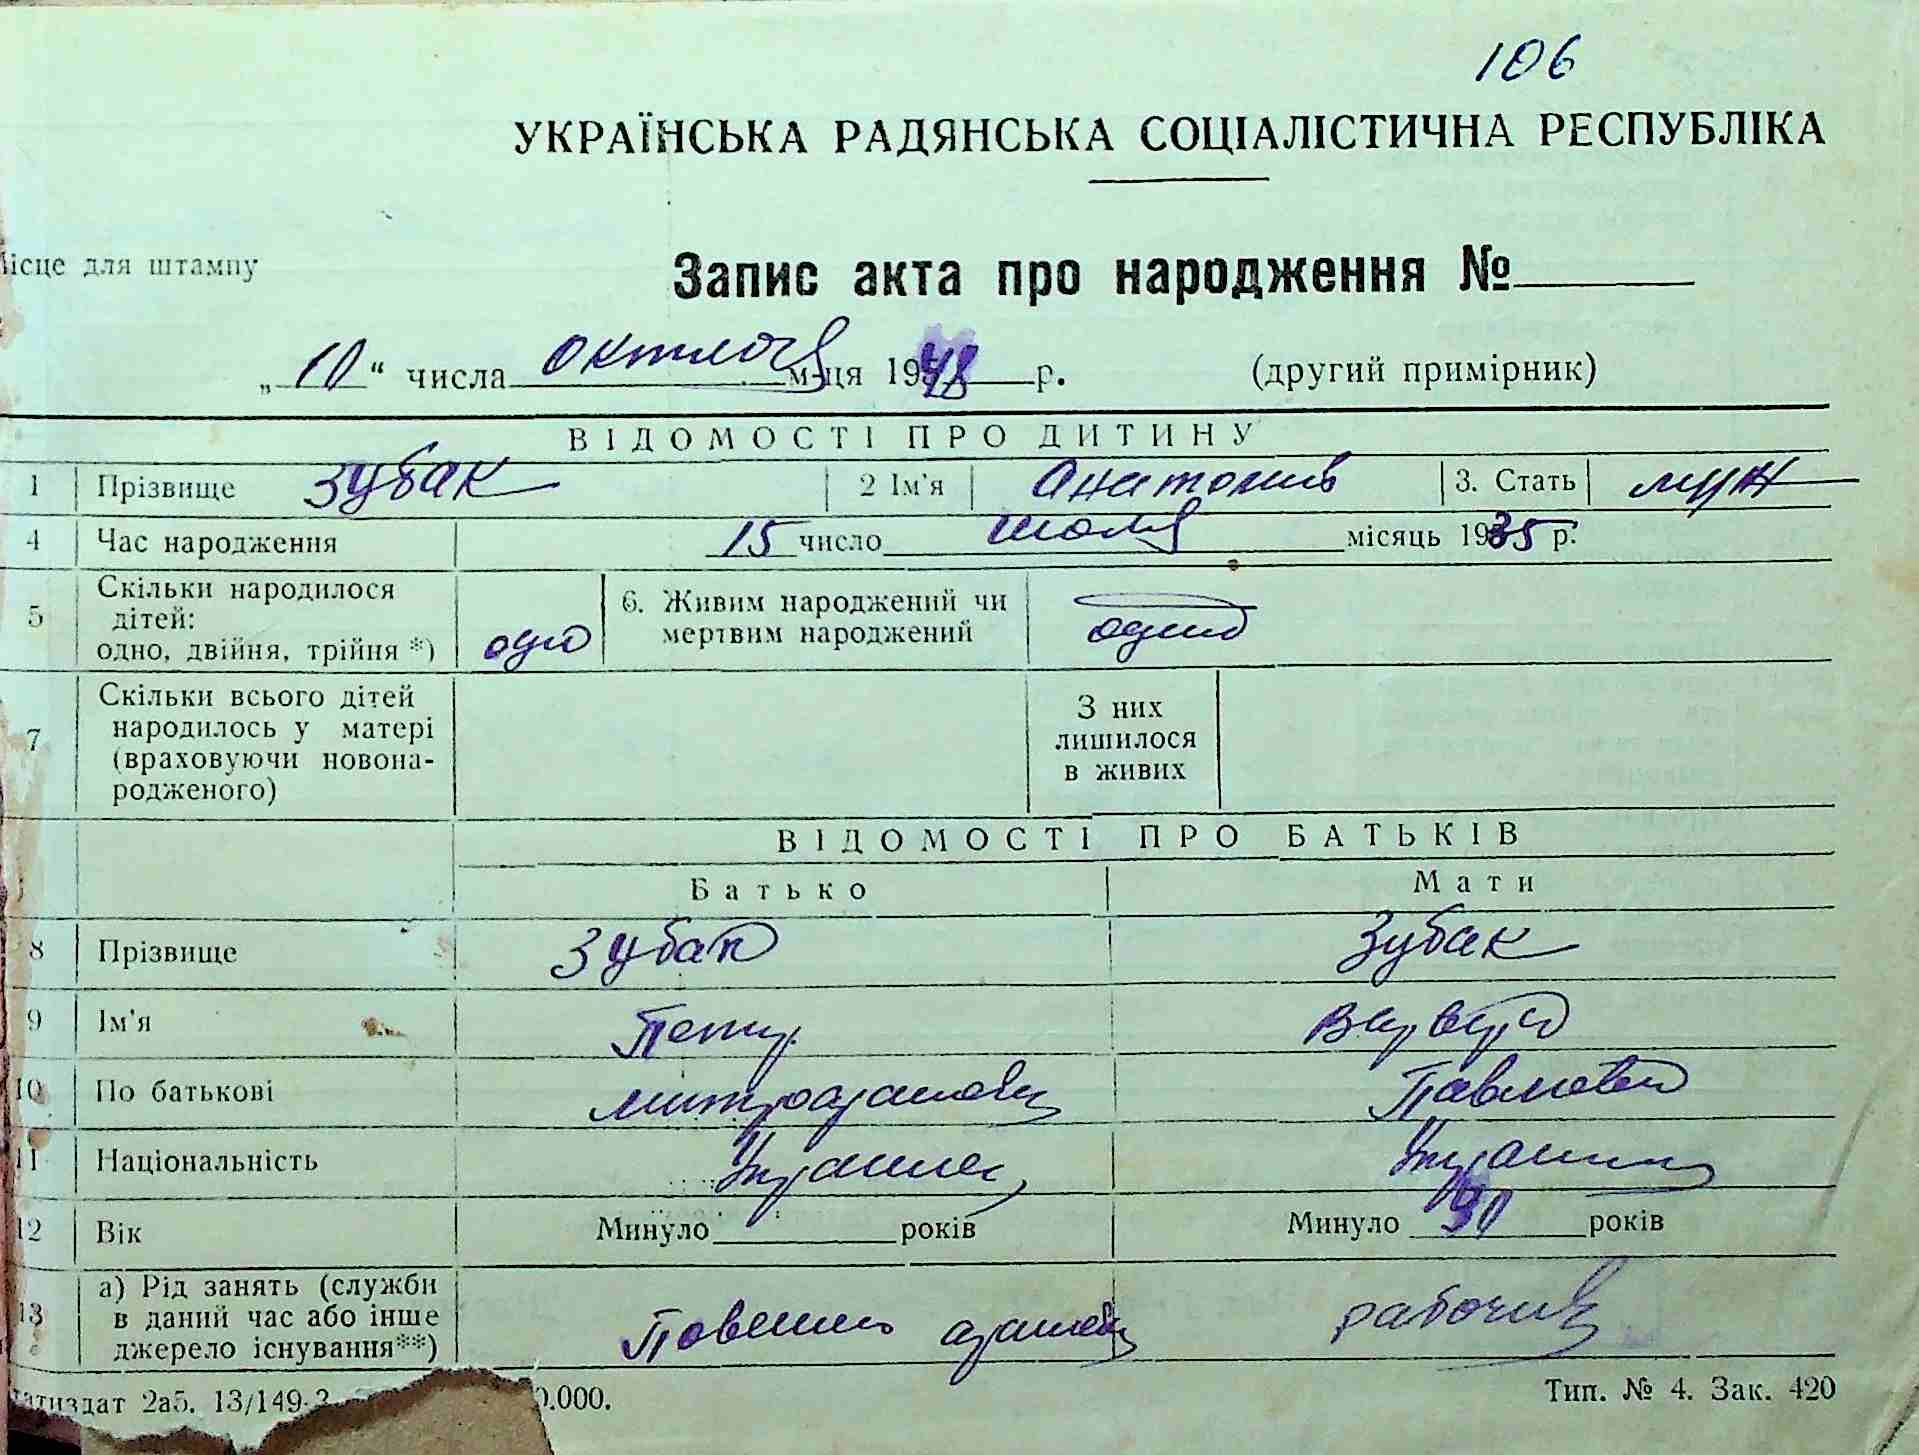 106
УКРАЇНСЬКА РАДЯНСЬКА СОЦІАЛІСТИЧНА РЕСПУБЛІКА
ісце для штампу
Запис акта про народження №
„10“ числа м-ця 1948 р. (другий примірник)
ВІДОМОСТІ ПРО ДИТИНУ
1 Прізвище Зубак 2 Ім'я Анатолий 3. Стать муж
4 Час народження 15 число июля місяць 1935 р.
5 Скільки народилося дітей: одно, двійня, трійня *) одно 6. Живим народжений чи мертвим народжений
7 Скільки всього дітей народилось у матері (враховуючи новона-родженого) З них лишилося в живих
ВІДОМОСТІ ПРО БАТЬКІВ
Батько Мати
8 Прізвище Зубак Зубак
9 Ім'я Петр Варвара
10 По батькові Митрофанович Павловна
11 Національність Украинец Украинка
12 Вік Минуло років Минуло 30 років
13 а) Рід занять (служби в даний час або інше джерело існування**) рабочий
атиздат 2а5. 13/149-3 0.000. Тип. № 4. Зак. 420